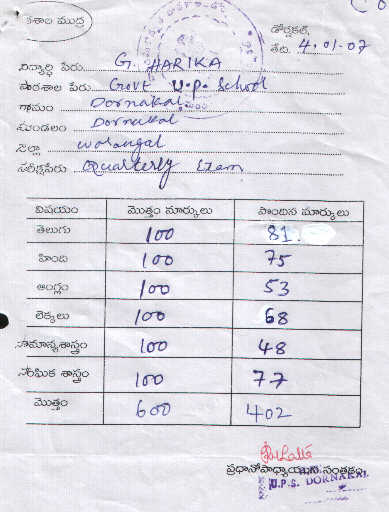 కళాం ముద్ర
డోర్నకల్,
తేది. 4.01.07
విద్యార్థి పేరు G. HARIKA
పాఠశాల పేరు Govt U.P. School
గ్రామం Dornakal
మండలం Dornakal
జిల్లా Warangal
పరీక్షపేరు Quarterly Exam
విషయం మొత్తం మార్కులు పొందిన మార్కులు
తెలుగు 100 81.
హింది 100 75
ఆంగ్లం 100 53
లెక్కలు 100 68
సామాన్యశాస్త్రం 100 48
సాంఘిక శాస్త్రం 100 77
మొత్తం 600 402
ప్రధానోపాధ్యాయుని సంతకం
U.P.S. DORNAKAL